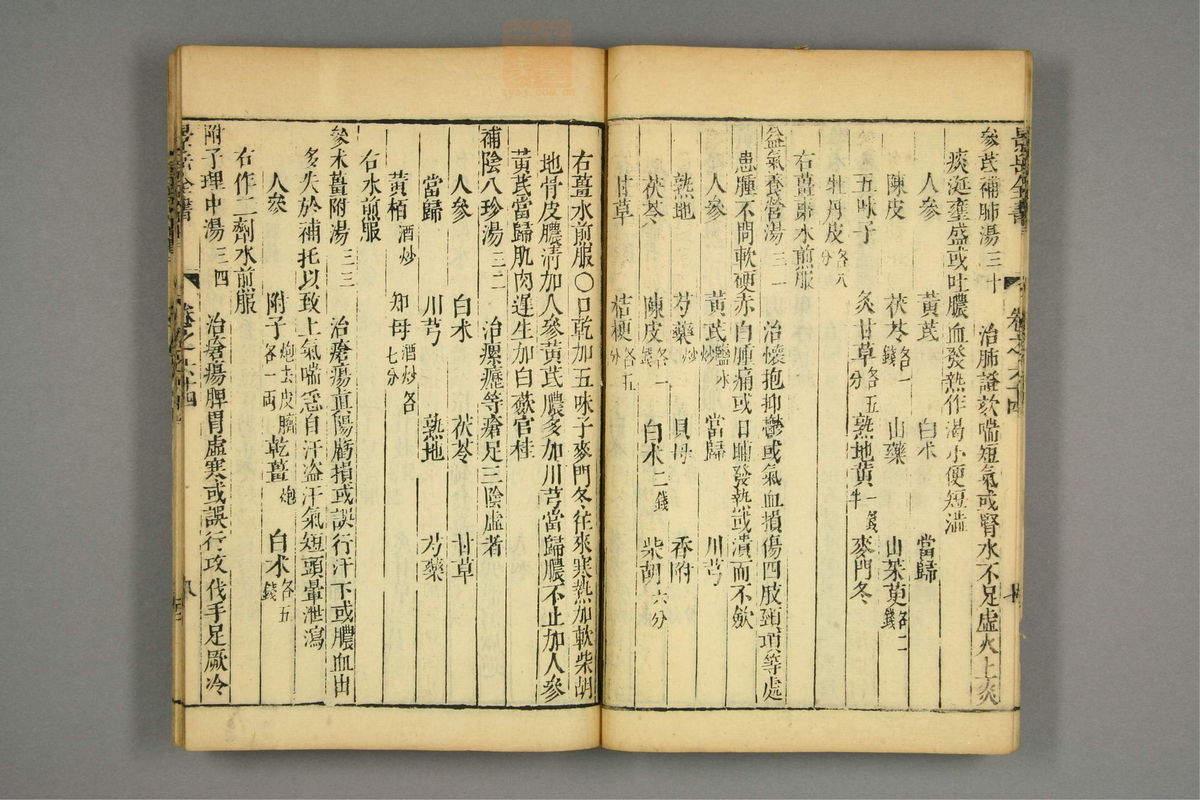 景岳全書
卷之六十四
參芪補肺湯三十 治肺證欬喘短氣或腎水不足虛火上炎
痰涎壅盛或吐膿血發熱作渴小便短澁
人參 黃芪 白术 當歸
陳皮 茯苓各一錢 山藥 山茱萸各二錢
五味子 炙甘草各五分 熟地黃一錢半 麥門冬
牡丹皮各八分
右薑棗水煎服
益氣養營湯三一 治懷抱抑鬱或氣血損傷四肢頸項等處
患腫不問軟硬赤白腫痛或日晡發熱或潰而不歛
人參 黃芪鹽水炒 當歸 川芎
熟地 芍藥炒 貝母 香附
茯苓 陳皮各一錢 白术二錢 柴胡六分
甘草 桔梗各五分
右薑水煎服〇口乾加五味子麥門冬往來寒熱加軟柴胡
地骨皮膿清加人參黃芪膿多加川芎當歸膿不止加人參
黃芪當歸肌肉遲生加白蘞官桂
補陰八珍湯三二 治瘰癧等瘡足三陰虛者
人參 白术 茯苓 甘草
當歸 川芎 熟地 芍藥
黃栢酒炒 知母酒炒各七分
右水煎服
參术薑附湯三三 治瘡瘍眞陽虧損或誤行汗下或膿血出
多失於補托以致上氣喘急自汗盜汗氣短頭暈泄瀉
人參 附子炮去皮臍各一兩 乾薑炮 白术各五錢
右作二劑水煎服
附子理中湯三四 治瘡瘍脾胃虛寒或誤行攻伐手足厥冷
景岳全書
卷之六十四